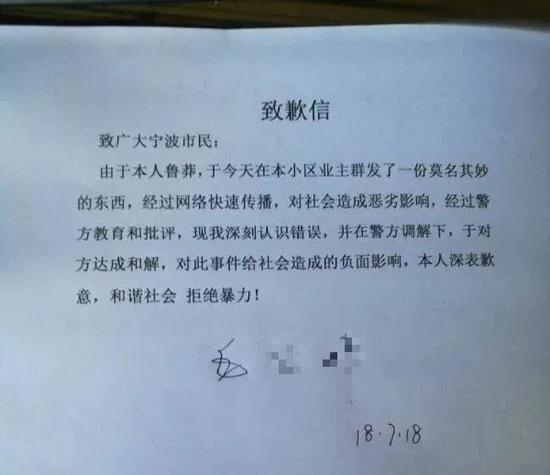 致歉信
致广大宁波市民：
由于本人鲁莽，于今天在本小区业主群发了一份莫名其妙
的东西，经过网络快速传播，对社会造成恶劣影响，经过警
方教育和批评，现我深刻认识错误，并在警方调解下，于对
方达成和解，对此事件给社会造成的负面影响，本人深表歉
意，和谐社会 拒绝暴力！
18.7.18